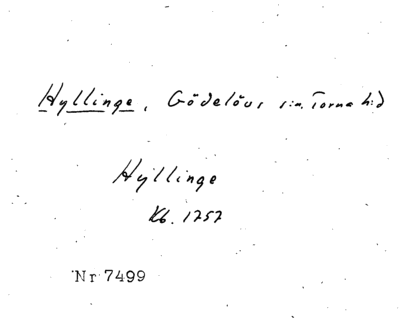 Hyllinge, Gödelövs s:n, Torna h:d
Hyllinge
Kb. 1757
Nr 7499